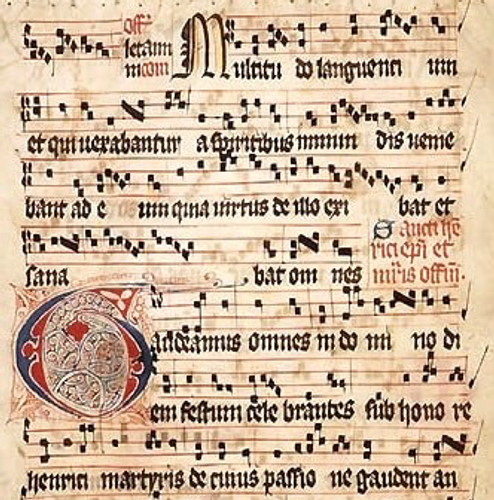 offr̄
letamī
in com̄
Multitu do languenti um
et qui uexabantur a spiritibus inmun dis uenie
bant ad e um quia uirtus de illo exi bat et
Sancti he
rici ep̄i et
sana bat om nes mr̄is offm̄.
Gaudeamus omnes in do mi no di
em festum cele brantes sub hono re
henrici martyris de cuius passio ne gaudent an